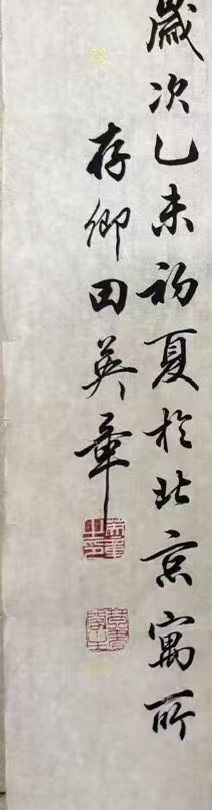 歲次乙未初夏於北京寓所
存卿田英章